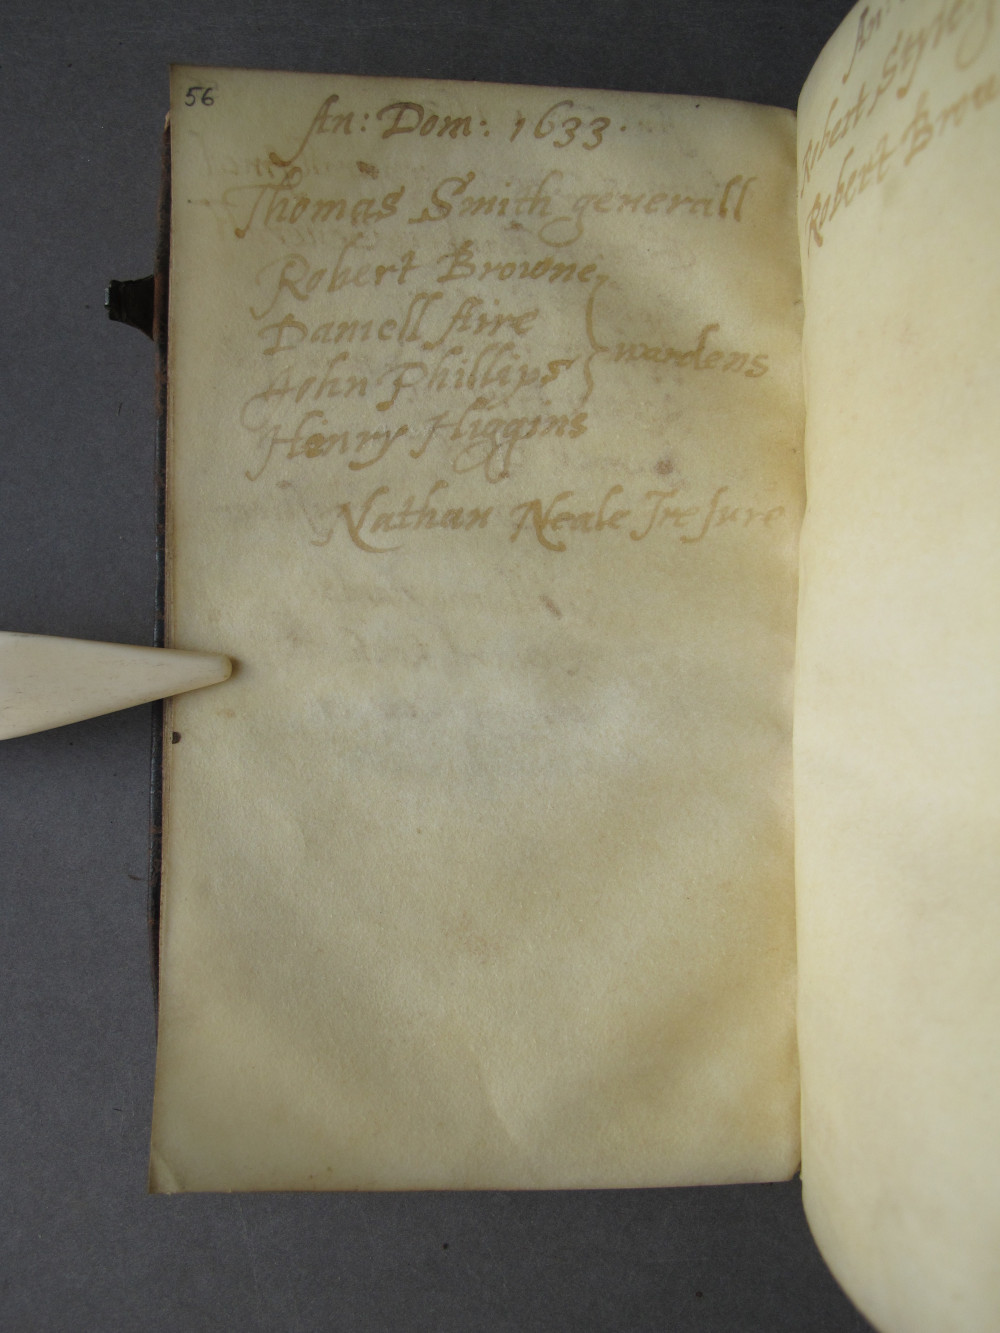 56
An: Dom: 1633.
Thomas Smith generall
Robert Browne
Daniell Aire
John Phillips
wardens
Henry Higgins
Nathan Neale Tresure
An:
Robert Style
Robert Brow